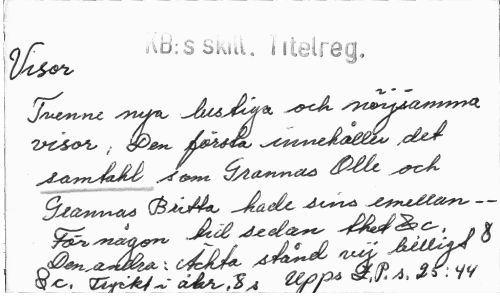 KB:s skill. Titelreg.
Visor
Tvenne nya lustiga och nöjsamma
visor, Den första innehåller det
samtahl som Grannas Olle och
Grannas Britta hade sins emellan --
För någon hül sedan thet &c.
Den andra: Ächta stånd vij billigt &
&c. Tryckt i åhr. 8 s Upps L.P.s. 25:44